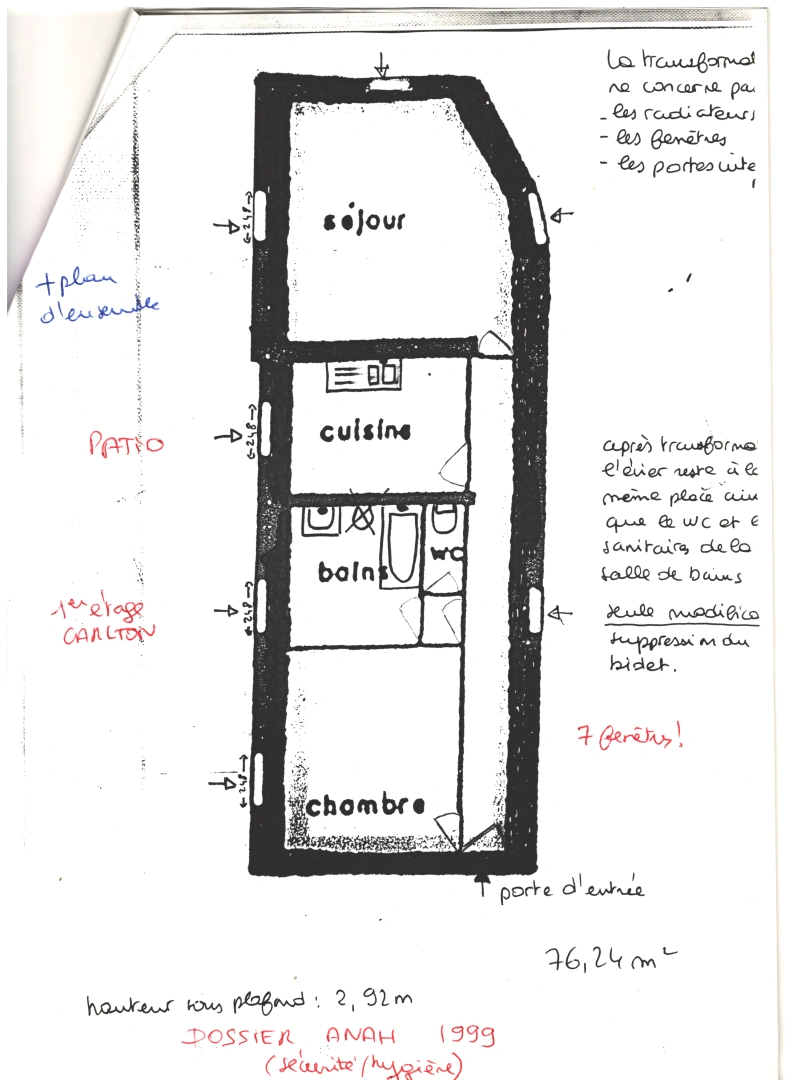 la transformat
ne concerne pa
- les radiateurs
- les fenêtres
- les portes inte
séjour
←248→
+ plan
d'ensemble
cuisine
←248→
PATIO
après transforma
l'évier reste à la
même place ain
que le WC et l
sanitaires de la
salle de bains
seule modifica
suppression du
bidet.
WC
bains
←248→
1er étage
CARLTON
7 fenêtres!
←248→
chambre
porte d'entrée
76,24 m²
hauteur sous plafond : 2,92 m
DOSSIER ANAH 1999
(sécurité/hygière)